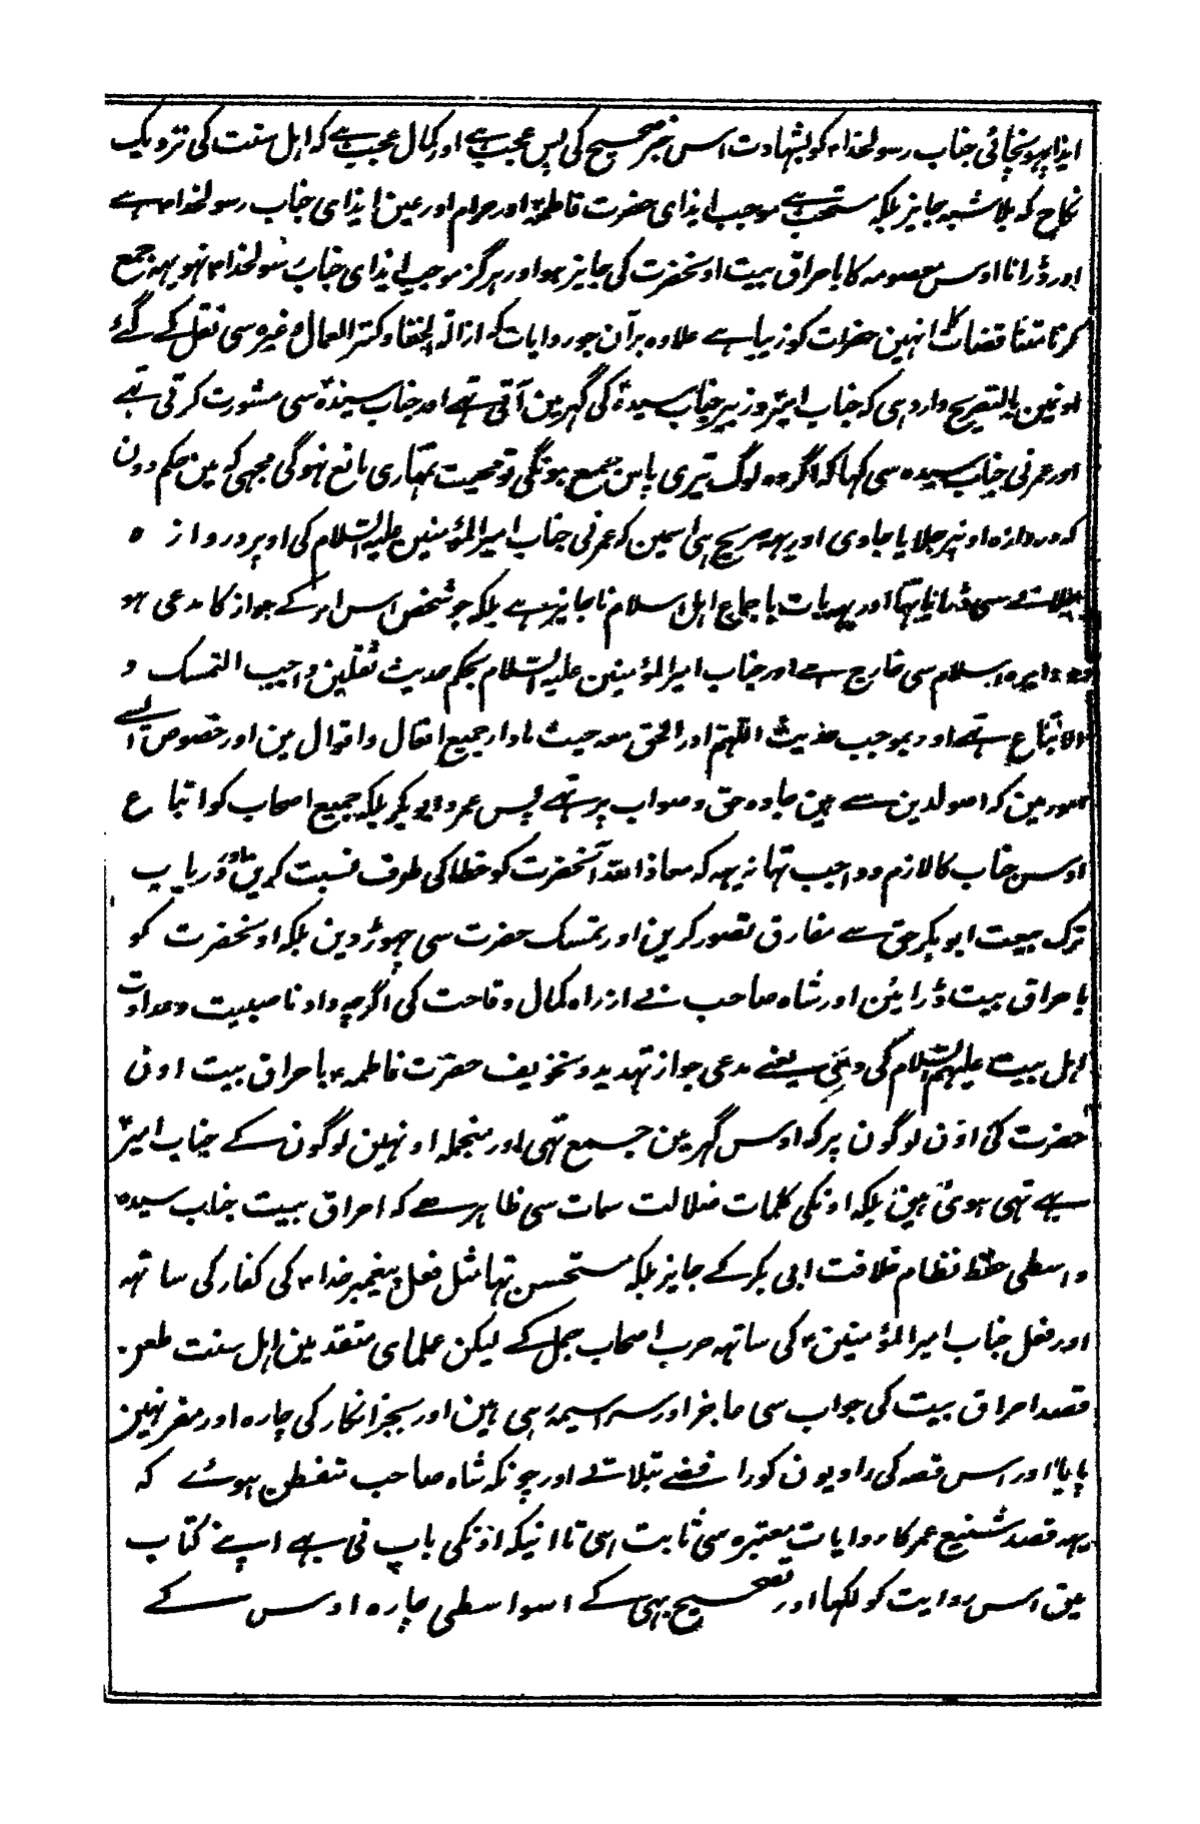 ایذا پہونچائی جناب رسولخدا۴ کو بشہادت اس خبر صحیح کی پس عجب ہے اور کمال عجب ہے کہ اہل سنت کی نزدیک
نکاح کہ بلا شبہہ جایز بلکہ مستحب ہے موجب ایذای حضرت فاطمہؑ اور حرام اور عین ایذای جناب رسولخدا ہے
اور ڈرانا اوس معصومہ کا باحراق بیت اونحضرت کی جایز ہو اور ہرگز موجب ایذای جناب رسولخدا۴ نہو یہہ جمع
کرنا متناقضات کا انہین حضرات کو زیبا ہے علاوہ برآن جو روایات کہ ازالۃ الخفا و کنز العمال وغیرہ سی نقل کے گئے
اونمین بالتصریح وارد ہی کہ جناب امیرؑ و زبیر جناب سیدہؑ کی گہر مین آتی تھے اور جناب سیدہؑ سی مشورت کرتی تہے
اور عمر نی جناب سیدہ سی کہا کہ اگر وہ لوگ تیری پاس جمع ہونگی تو محبت تمہاری مانع نہوگی مجہی کہ مین حکم دون
کہ دروازہ اونپر جلایا جاوی اور یہہ صریح ہی اسمین کہ عمر نی جناب امیر المؤمنین علیہ السلام کی اوپر دروازہ
جلانے سی ڈرایا تہا اور یہہ بات باجماع اہل اسلام ناجایز ہے بلکہ جو شخص اس امر کے جواز کا مدعی ہو
دایرہ اسلام سی خارج ہے اور جناب امیر المؤمنین علیہ السلام بحکم حدیث ثقلین واجب التمسک و
الاتباع تہے اور بموجب حدیث اللہم ادر الحق معہ حیث مادار جمیع افعال و اقوال مین اور خصوص ایسے
امور مین کہ اصولدین سے ہین جادہ حق و صواب پر تہے پس عمر و ابوبکر بلکہ جمیع اصحاب کو اتباع
اوس جناب کا لازم و واجب تہا نہ یہہ کہ معاذ اللہ آنحضرت کو خطا کی طرف نسبت کرین اور درباب
ترک بیعت ابوبکر حق سے مفارق تصور کرین اور تمسک حضرت سی چہوڑ دین بلکہ اونحضرت کو
باحراق بیت ڈرایئن اور شاہ صاحب نے از راہ کمال وقاحت کی اگرچہ داد ناصبیت و عداوت
اہل بیت علیہم السلام کی دی یعنے مدعی جواز تہدید و تخویف حضرت فاطمہ۴ باحراق بیت اون
حضرت کی اون لوگون پر کہ اوس گہر مین جمع تہی اور منجملہ اونہین لوگون کے جناب امیرؑ
بہے تہی ہوئی ہین بلکہ اونکی کلمات ضلالت سمات سی ظاہر ہے کہ احراق بیت جناب سیدہ
واسطی حفظ نظام خلافت ابی بکر کے جایز بلکہ مستحسن تہا مثل فعل پیغمبر خدا۴ کی کفار کی ساتہہ
اور فعل جناب امیر المؤمنین۴ کی ساتہہ حرب اصحاب جمل کے لیکن علمای متقدمین اہل سنت طعن
قصد احراق بیت کی جواب سی عاجز اور سراسیمہ ہی ہین اور بجز انکار کی چارہ اور مفر نہین
پایا اور اس قصہ کی راویون کو رافضے بتلاتے اور چونکہ شاہ صاحب متفطن ہوئے کہ
یہہ قصد شنیع عمر کا روایات معتبرہ سی ثابت ہی تا اینکہ اونکی باپ نی بہے اپنے کتاب
مین اس روایت کو لکہا اور تصحیح بہی کے اسواسطی چارہ اوس کے